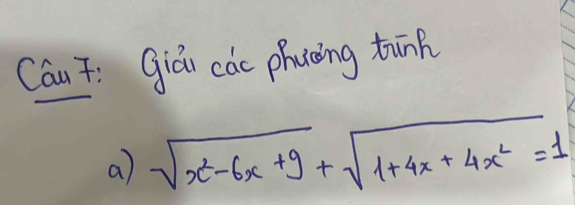 Câu 7: Giải các phương trình
a) √x²-6x+9 + √1+4x+4x² = 1